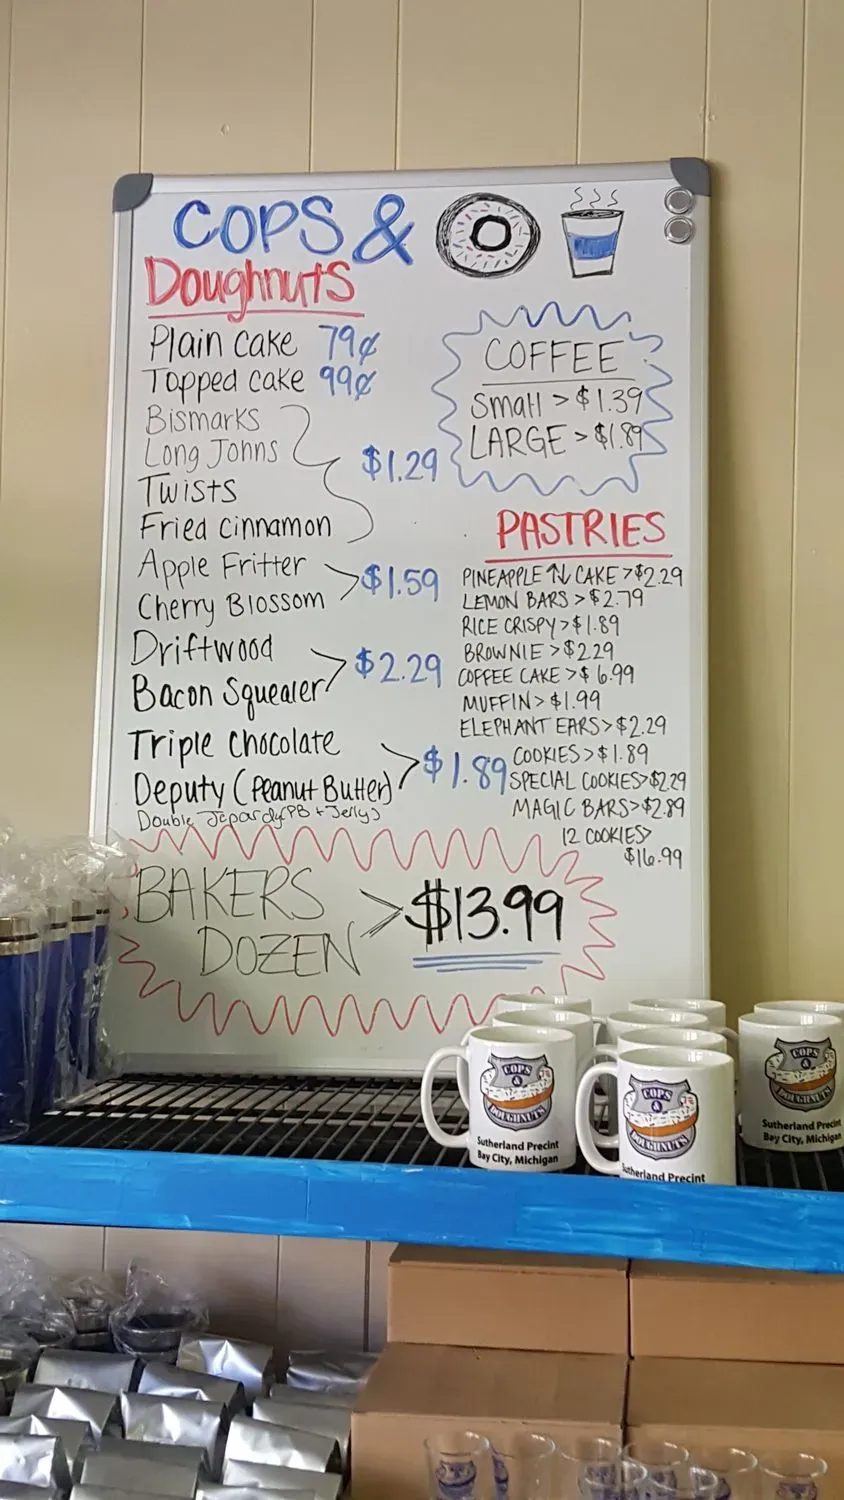 COPS &
Doughnuts
Plain cake 79¢
Topped cake 99¢
Bismarks
Long Johns
Twists
Fried cinnamon
$1.29
Apple Fritter
Cherry Blossom
> $1.59
Driftwood
Bacon Squealer
> $2.29
Triple chocolate
Deputy (Peanut Butter)
Double Jepardy (PB + Jelly)
> $1.89
COFFEE
Small > $1.39
LARGE > $1.89
PASTRIES
PINEAPPLE ↑↓ CAKE > $2.29
LEMON BARS > $2.79
RICE CRISPY > $1.89
BROWNIE > $2.29
COFFEE CAKE > $6.99
MUFFIN > $1.99
ELEPHANT EARS > $2.29
COOKIES > $1.89
SPECIAL COOKIES > $2.29
MAGIC BARS > $2.89
12 COOKIES >
$16.99
BAKERS
DOZEN
> $13.99
COPS
&
DOUGHNUTS
Sutherland Precint
Bay City, Michigan
COPS
&
DOUGHNUTS
Sutherland Precint
COPS
&
DOUGHNUTS
Sutherland Precint
Bay City, Michigan